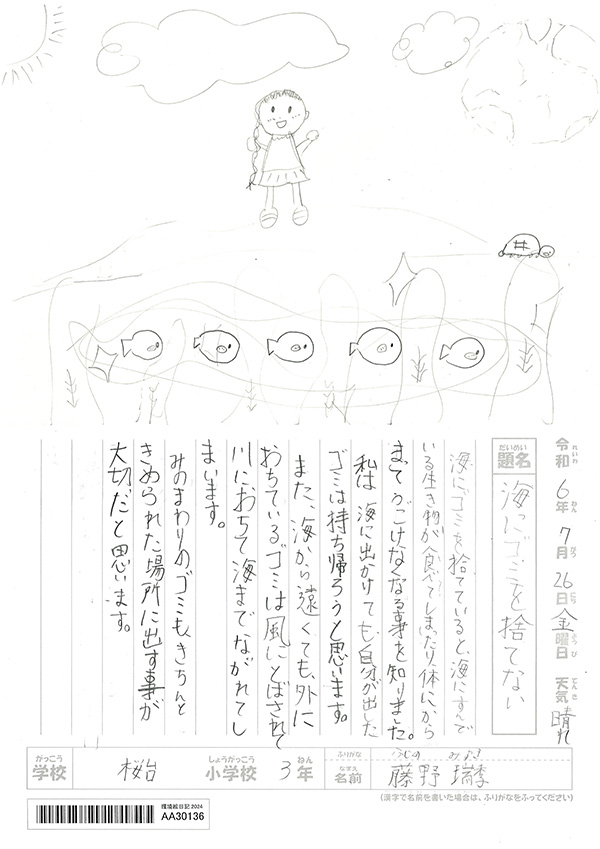 令和6年7月26日金曜日 天気 晴れ
れいわ ねん がつ にち ようび てんき
だいめい
題名 海にゴミを捨てない
海にゴミを捨てていると、海にすんで
いる生き物が食べてしまったり体にから
まってうごけなくなる事を知りました。
私は海に出かけても自分が出した
ゴミは持ち帰ろうと思います。
また、海から遠くても、外に
おちているゴミは風にとばされて
川におちて海までながれてし
まいます。
みのまわりのゴミも、きちんと
きめられた場所に出す事が
大切だと思います。
がっこう しょうがっこう ねん ふりがな
学校 桜台 小学校 3年
なまえ
名前 藤野 瑞季
(漢字で名前を書いた場合は、ふりがなをふってください)
環境絵日記2024
AA30136